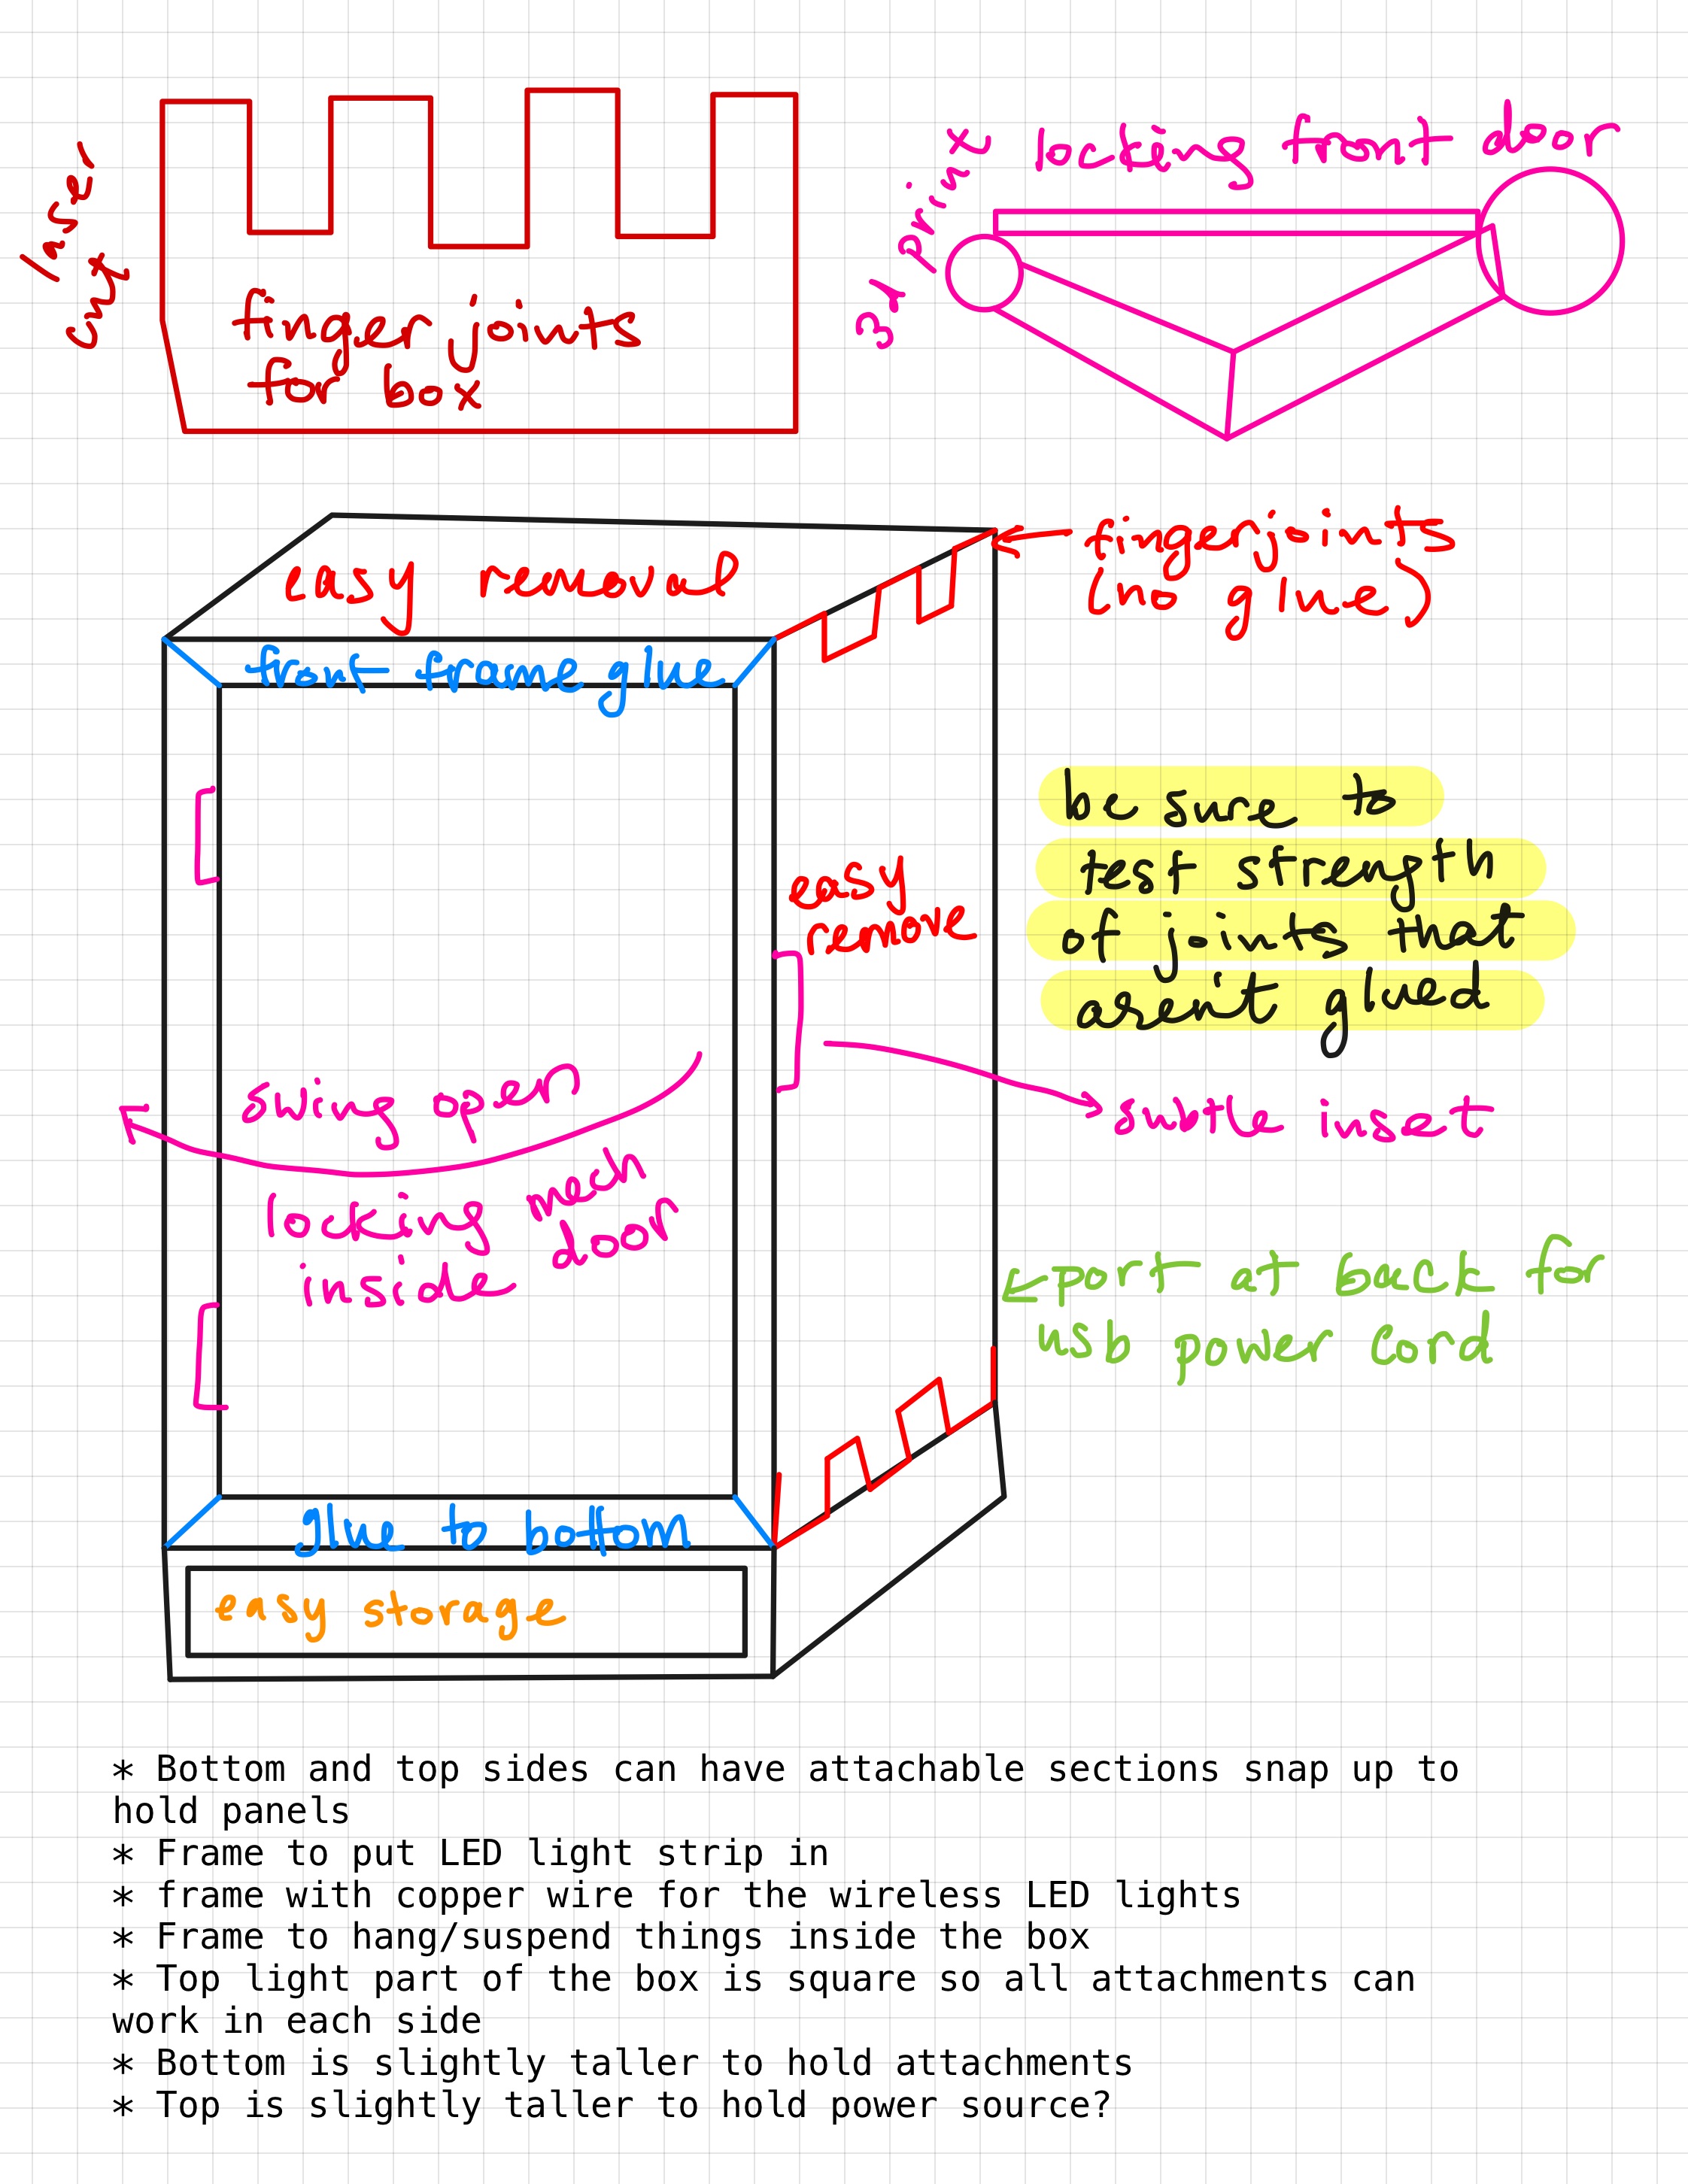 laser
cut
finger joints
for box
3d print
locking front door
easy removal
fingerjoints
(no glue)
front frame glue
be sure to
test strength
of joints that
aren't glued
easy
remove
subtle inset
swing open
locking mech
inside door
port at back for
usb power cord
glue to bottom
easy storage
* Bottom and top sides can have attachable sections snap up to
hold panels
* Frame to put LED light strip in
* frame with copper wire for the wireless LED lights
* Frame to hang/suspend things inside the box
* Top light part of the box is square so all attachments can
work in each side
* Bottom is slightly taller to hold attachments
* Top is slightly taller to hold power source?